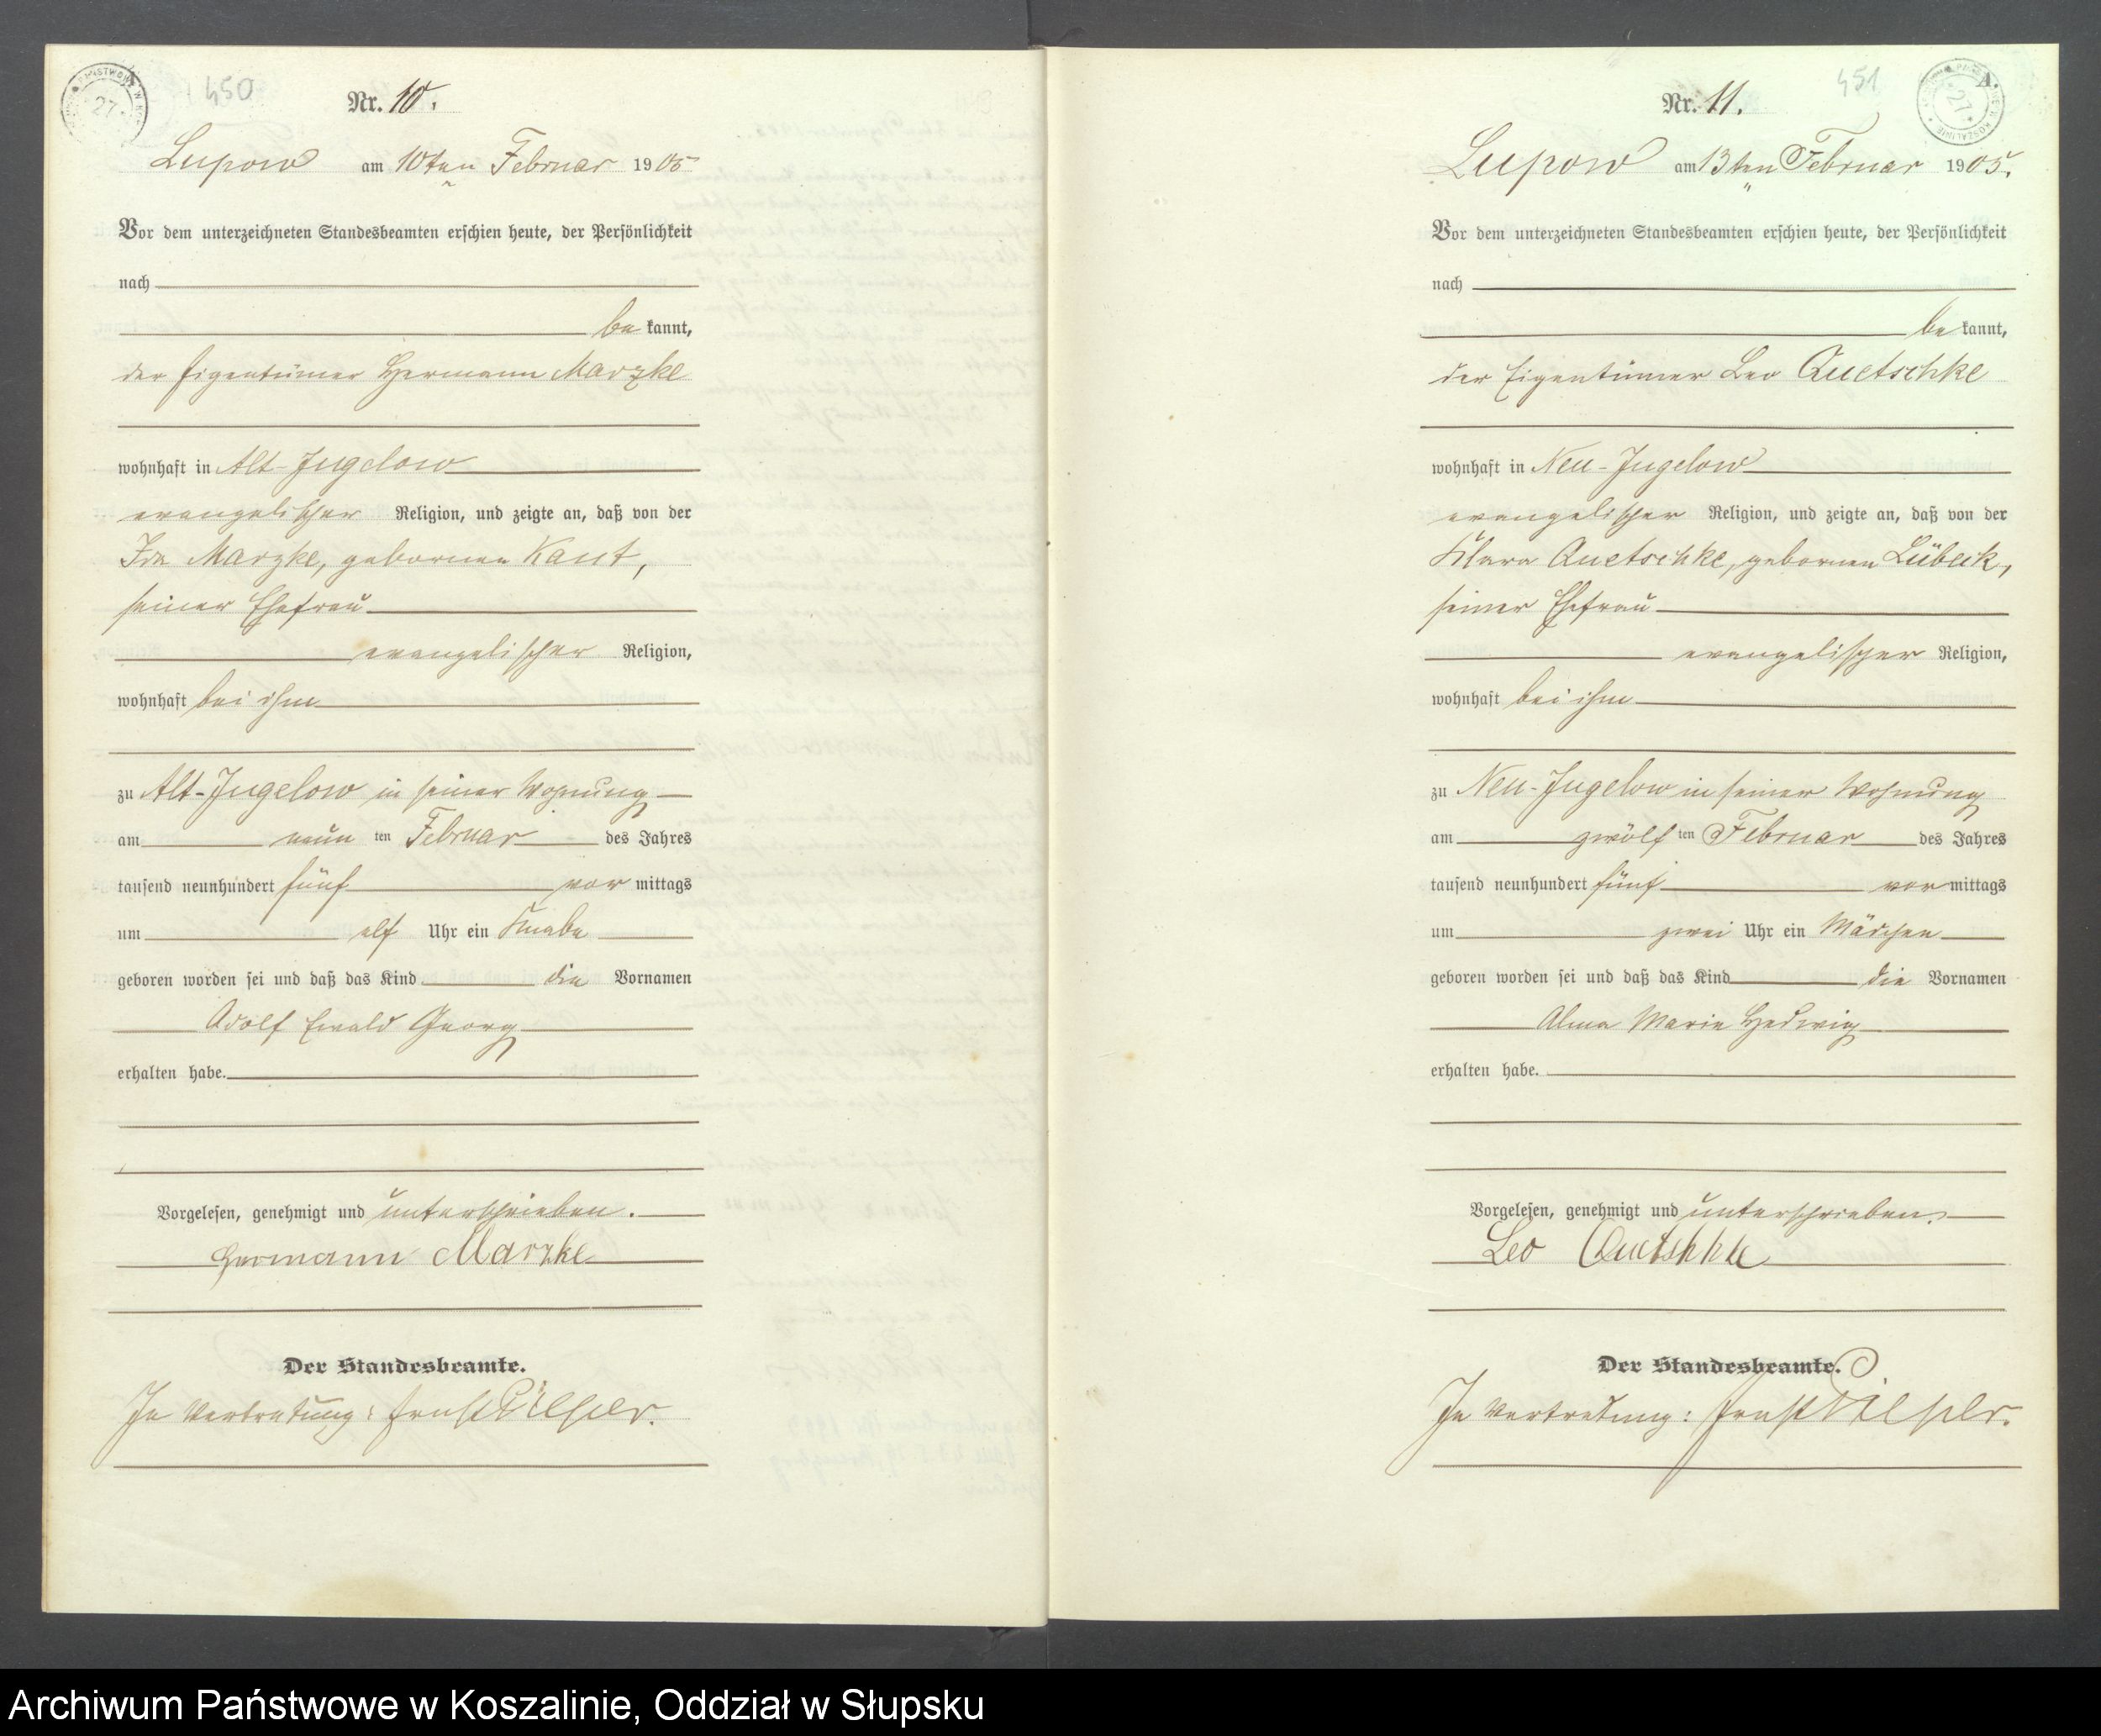 450
Nr. 10.
Lupow am 10ten Februar 1905
Vor dem unterzeichneten Standesbeamten erschien heute, der Persönlichkeit
nach
be kannt,
der Eigentümer Hermann Marzke
wohnhaft in Alt-Jugelow
evangelischer Religion, und zeigte an, daß von der
Ida Marzke, gebornen Kaut,
seiner Ehefrau
evangelischer Religion,
wohnhaft bei ihm
zu Alt-Jugelow in seiner Wohnung
am neun ten Februar des Jahres
tausend neunhundert fünf vor mittags
um elf Uhr ein Knabe
geboren worden sei und daß das Kind die Vornamen
Adolf Ewald Georg
erhalten habe.
Vorgelesen, genehmigt und unterschrieben.
Hermann Marzke
Der Standesbeamte.
In Vertretung: Ernst
451
A.
Nr. 11.
Lupow am 13ten Februar 1905.
Vor dem unterzeichneten Standesbeamten erschien heute, der Persönlichkeit
nach
be kannt,
der Eigentümer Leo Quetschke
wohnhaft in Neu-Jugelow
evangelischer Religion, und zeigte an, daß von der
Klara Quetschke, gebornen Lübeck,
seiner Ehefrau
evangelischer Religion,
wohnhaft bei ihm
zu Neu-Jugelow in seiner Wohnung
am zwölf ten Februar des Jahres
tausend neunhundert fünf vor mittags
um zwei Uhr ein Mädchen
geboren worden sei und daß das Kind die Vornamen
Alma Marie Hedwig
erhalten habe.
Vorgelesen, genehmigt und unterschrieben.
Leo Quetschke
Der Standesbeamte.
In Vertretung: Ernst
Archiwum Państwowe w Koszalinie, Oddział w Słupsku